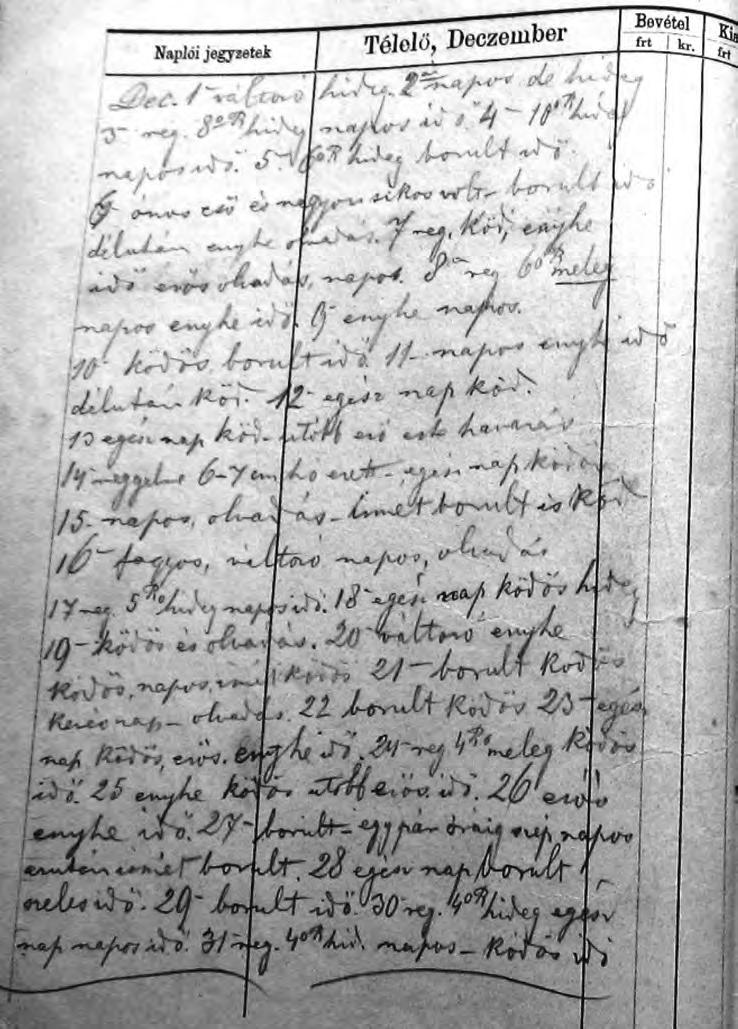 Naplói jegyzetek
Télelő, Deczember
Bevétel
frt kr.
frt
Dec. 1 változó hideg. 2 napos de hideg
3 reg. 8° R hideg napos idő. 4 - 10° R hideg
napos idő. 5. 6° R hideg borult idő.
6 ónos eső és nagyon sikos volt - borult idő
délután enyhe olvadás. 7 reg. köd, enyhe
idő erős olvadás, napos. 8 reg 6° R meleg
napos enyhe idő. 9 enyhe napos.
10 ködös, borult idő. 11 - napos enyhe idő
délután köd. 12 - egész nap köd.
13 egész nap köd - utóbb eső este havazás
14 reggelre 6-7 cm hó esett - egész nap ködös
15 - napos, olvadás - ismét borult és köd
16 - fagyos, változó napos, olvadás
17 reg. 5 R° hideg napos idő. 18 - egész nap ködös hideg
19 - ködös és olvadás. 20 - változó enyhe
ködös, napos, ismét ködös 21 - borult ködös
nap - olvadás. 22 borult ködös 23 - egész
nap ködös, enyhe idő. 24 - reg 4 R° meleg ködös
idő. 25 enyhe ködös utóbb esős idő. 26 esős
enyhe idő. 27 - borult - egy pár óráig szép, napos
azután ismét borult. 28 egész nap borult
szeles idő. 29 - borult idő. 30 reg. 4° R hideg egész
nap napos idő. 31 - reg. 4° R hid. napos - ködös idő